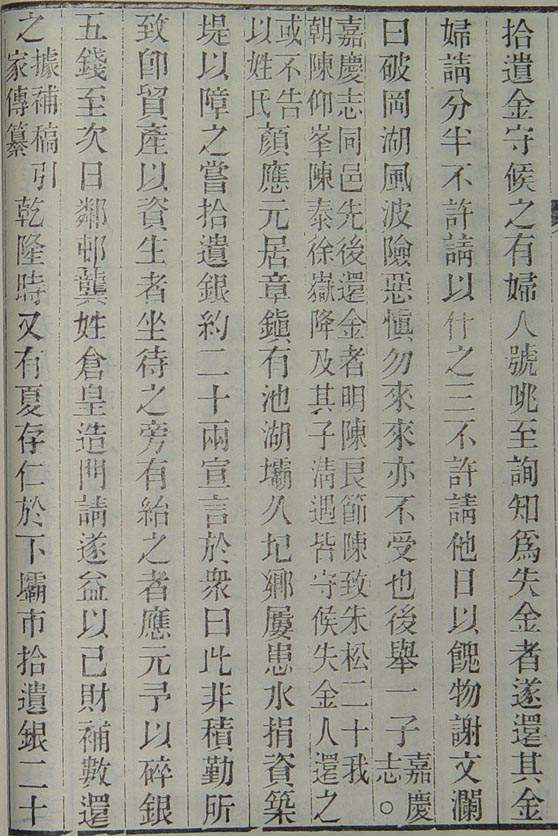 拾遺金守候之有婦人號咷至詢知爲失金者遂還其金
婦請分半不許請以什之三不許請他日以餽物謝文瀾
曰破岡湖風波險惡愼勿來來亦不受也後舉一子嘉慶志。
嘉慶志同邑先後還金者明陳良節陳致朱松二十我
朝陳仰峯陳泰徐嶽降及其子淸遇皆守候失金人還之
或不告以姓氏顏應元居章鎭有池湖壩久圮鄉屢患水捐資築
堤以障之嘗拾遺銀約二十兩宣言於衆曰此非積勤所
致卽貿產以資生者坐待之旁有紿之者應元予以碎銀
五錢至次日鄰邨龔姓倉皇造門請遂益以己財補數還
之據補稿引家傳纂乾隆時又有夏存仁於下壩市拾遺銀二十